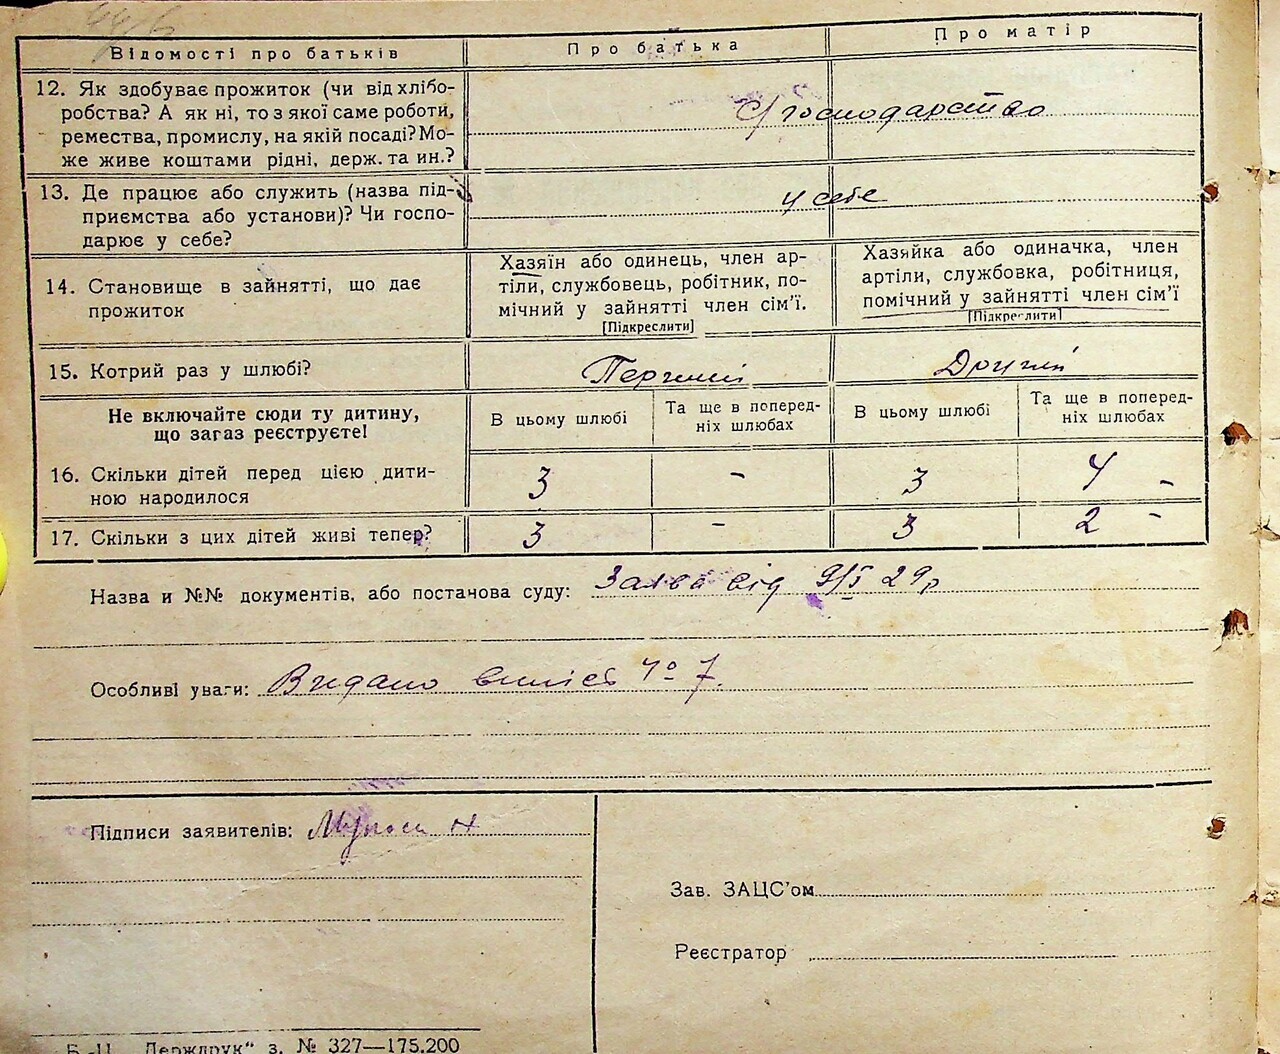 Відомості про батьків
Про батька
Про матір
12. Як здобуває прожиток (чи від хлібо-
робства? А як ні, то з якої саме роботи,
ремества, промислу, на якій посаді? Мо-
же живе коштами рідні, держ. та ин.?
С/господарство
13. Де працює або служить (назва під-
приємства або установи)? Чи госпо-
дарює у себе?
у себе
14. Становище в зайнятті, що дає
прожиток
Хазяїн або одинець, член ар-
тіли, службовець, робітник, по-
мічний у зайнятті член сім'ї.
[Підкреслити]
Хазяйка або одиначка, член
артіли, службовка, робітниця,
помічний у зайнятті член сім'ї
[Підкреслити]
15. Котрий раз у шлюбі?
Перший
Другий
Не включайте сюди ту дитину,
що загаз реєструєте!
В цьому шлюбі
Та ще в поперед-
ніх шлюбах
В цьому шлюбі
Та ще в поперед-
ніх шлюбах
16. Скільки дітей перед цією дити-
ною народилося
3
-
3
4 -
17. Скільки з цих дітей живі тепер?
3
-
3
2 -
Назва и №№ документів, або постанова суду: Заява від 9/I 29р
Особливі уваги: Видано випіс № 7.
Підписи заявителів:
Зав. ЗАЦС'ом
Реєстратор
Б.-Ц. „Держдрук" з. № 327—175.200